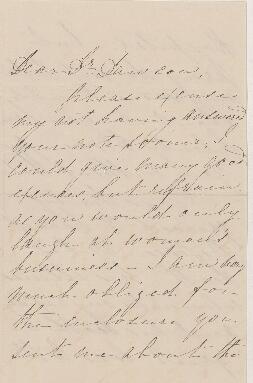 Dear Dr. Dawson,
Please excuse
my not having answered
your note sooner, I
could give many good
excuses but refrain
as you would only
laugh at woman's
business - I am very
much obliged for
the enclosure you
sent me about the